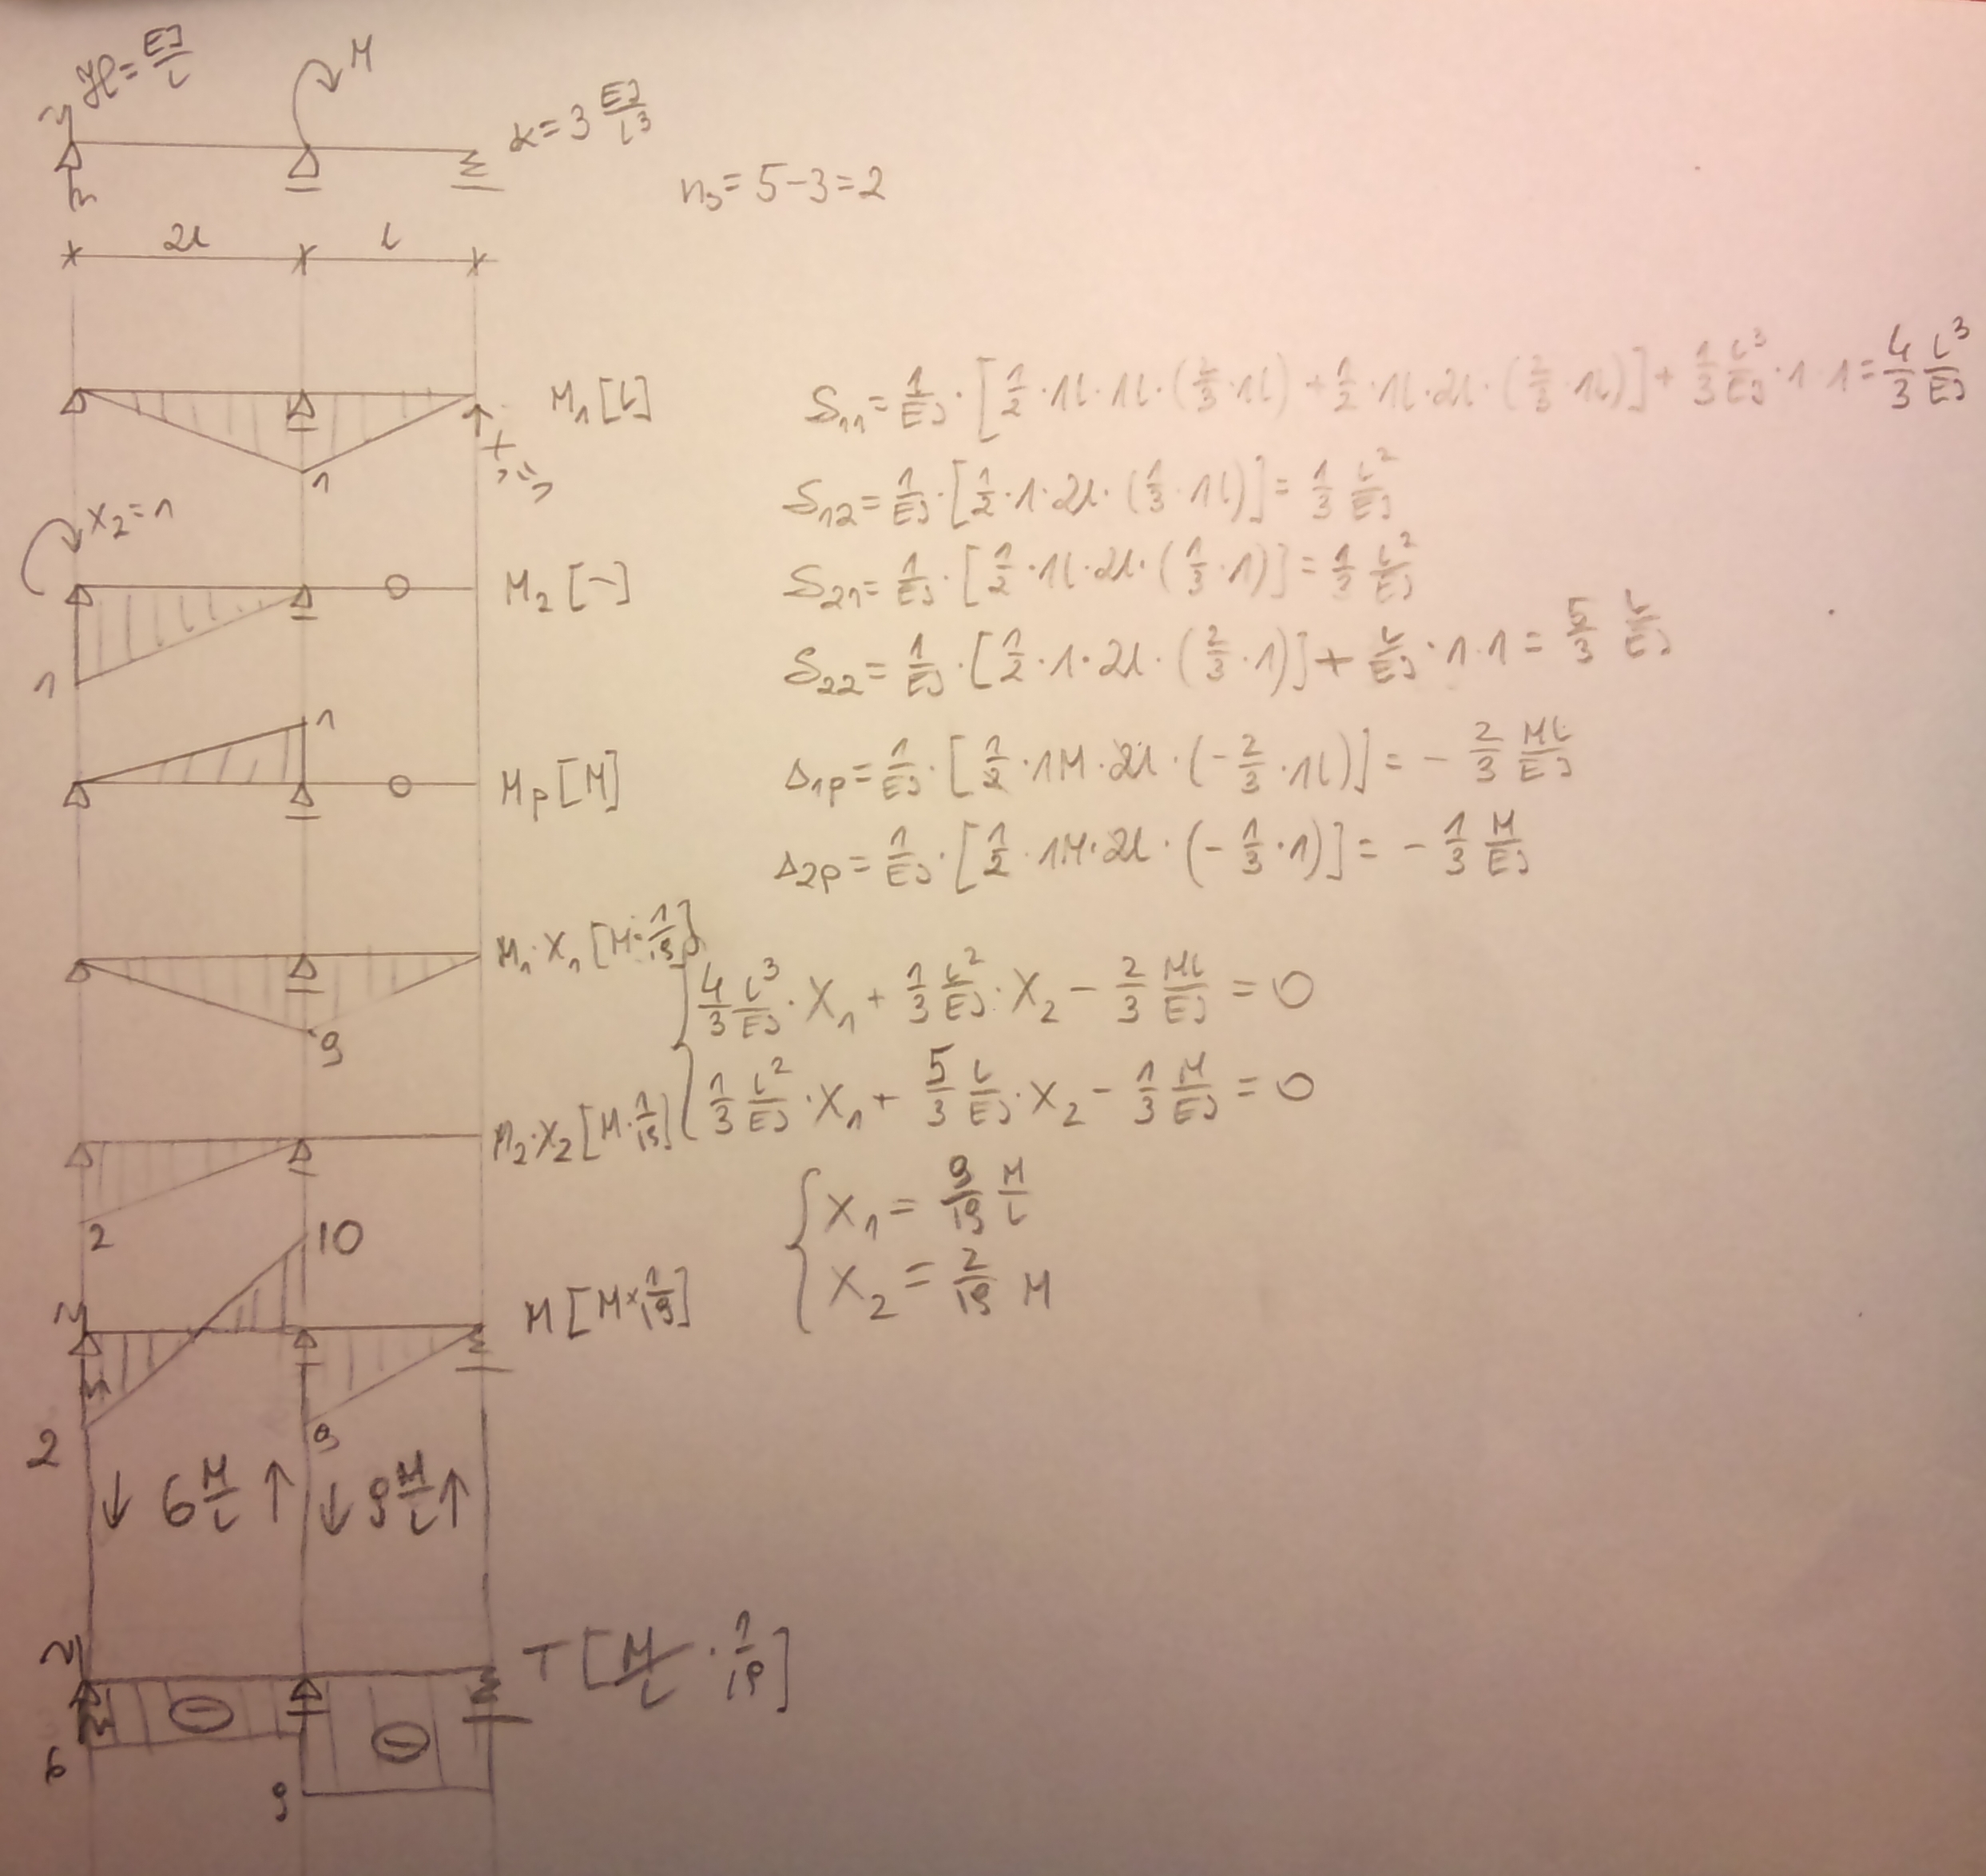 ℋ = EJ/l
M
k = 3 EJ/l³
n_s = 5 - 3 = 2
2l l
M₁ [l] δ₁₁ = 1/EJ · [1/2 · 1l · 1l · (2/3 · 1l) + 1/2 · 1l · 2l · (2/3 · 1l)] + 1/3 l³/EJ · 1 · 1 = 4/3 l³/EJ
1
X₁ = 1
δ₁₂ = 1/EJ · [1/2 · 1 · 2l · (1/3 · 1l)] = 1/3 l²/EJ
X₂ = 1
M₂ [-] δ₂₁ = 1/EJ · [1/2 · 1l · 2l · (1/3 · 1)] = 1/3 l²/EJ
1
δ₂₂ = 1/EJ · [1/2 · 1 · 2l · (2/3 · 1)] + l/EJ · 1 · 1 = 5/3 l/EJ
1
M_p [M] Δ₁p = 1/EJ · [1/2 · 1M · 2l · (-2/3 · 1l)] = - 2/3 Ml/EJ
Δ₂p = 1/EJ · [1/2 · 1M · 2l · (-1/3 · 1)] = - 1/3 M/EJ
M₁·X₁ [M · 1/19]
9
4/3 l³/EJ · X₁ + 1/3 l²/EJ · X₂ - 2/3 Ml/EJ = 0
M₂·X₂ [M · 1/19]
2
1/3 l²/EJ · X₁ + 5/3 l/EJ · X₂ - 1/3 M/EJ = 0
X₁ = 9/19 M/l
X₂ = 2/19 M
10
M [M × 1/19]
2
9
↓ 6 M/l ↑ ↓ 9 M/l ↑
T [M/l · 1/19]
- -
6
9